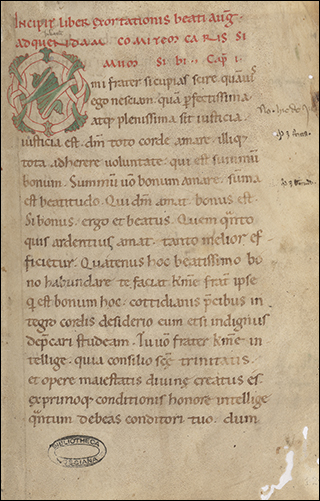 Incipit liber exortationis beati aug̅.
ad quendam comitem caris si
mum sibi. Cap̅ i.
O mi frater si cupias scire quāuis
ego nesciam. quā perfectissima
atq; plenissima sit iusticia.
Iusticia est. dm̅ toto corde amare. illiq;
tota adherere uoluntate. qui est summū
bonum. Summū u̅o bonum amare. sum̅a
est beatitudo. Qui dm̅ amat. bonus est.
Si bonus. ergo et beatus. Quem qn̅to
quis ardentius amat. tanto melior ef
ficietur. Quatenus hoc beatissimo bo
no habundare te faciat. kme̅ frat̅. ipse
q̅ est bonum hoc. cottidianis p̅cibus in
tegro cordis desiderio eum etsi indignus
dep̅cari studeam. Tu u̅o frater kme̅ in
tellige. quia consilio sc̅e trinitatis
et opere maiestatis diuinę creatus es.
ex primoq; conditionis honore intellige
qn̅tum debeas conditori tuo. dum
BIBLIOTHECA